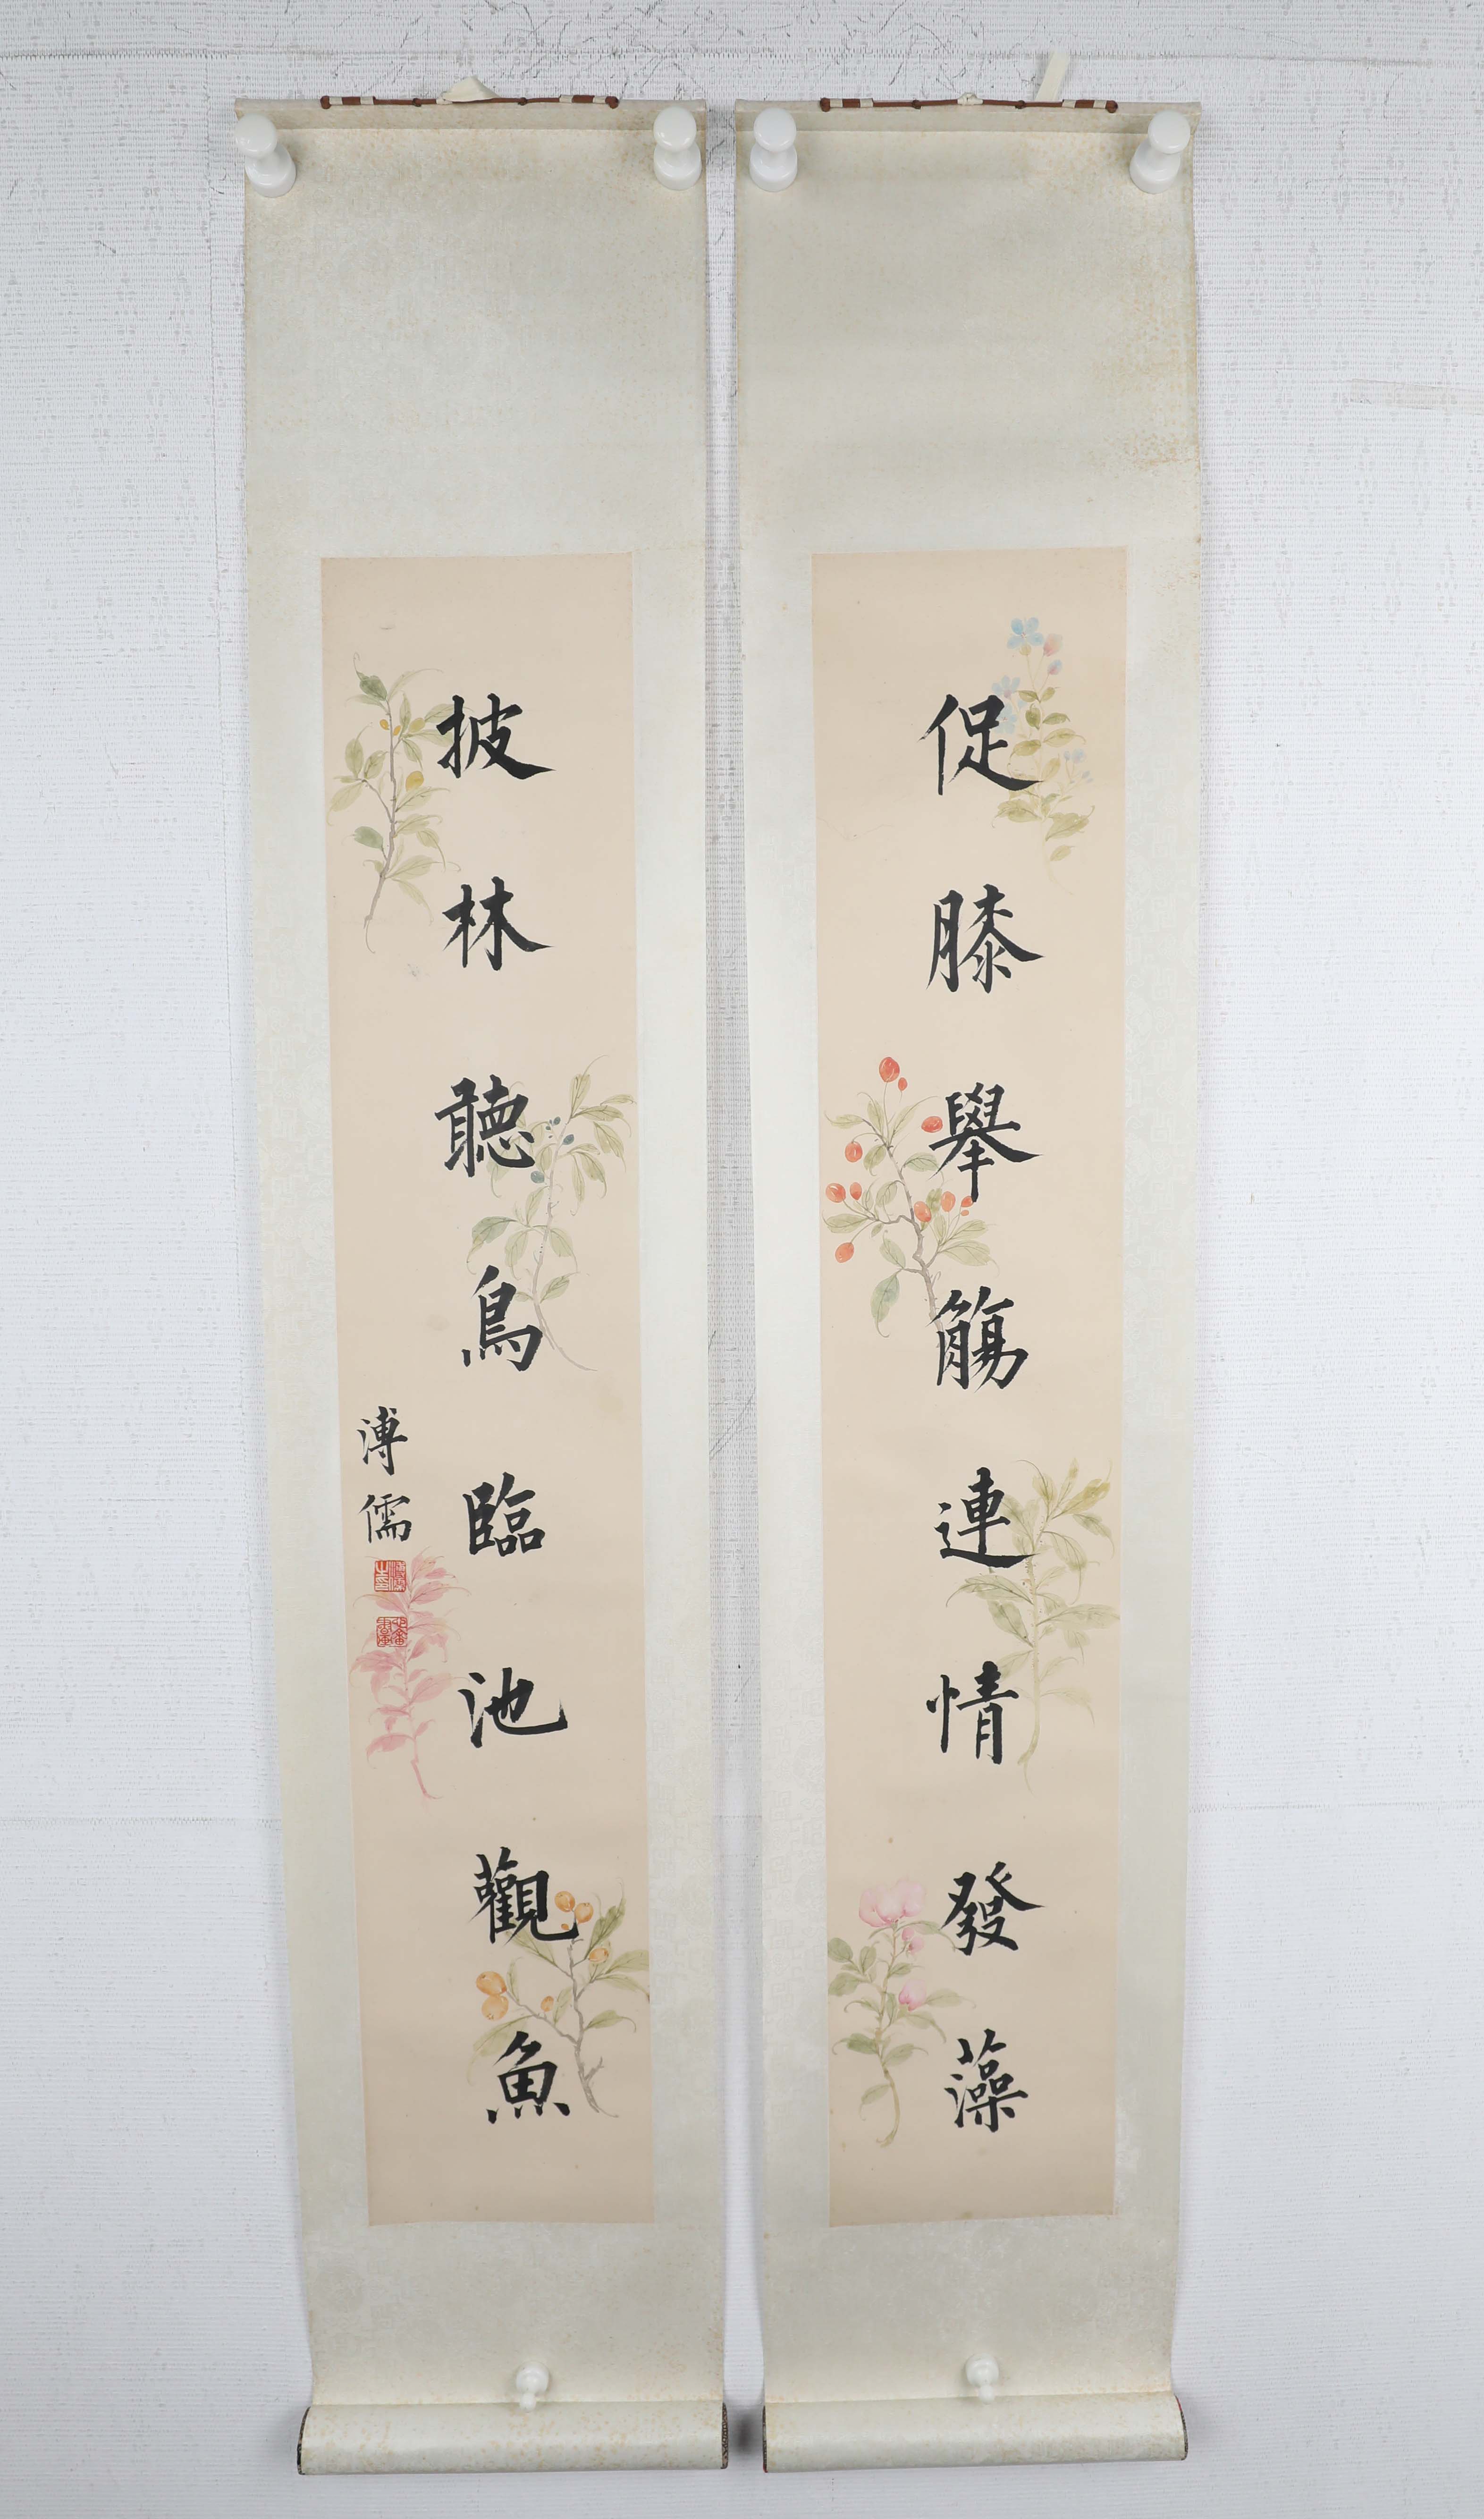 促膝舉觴連情發藻
披林聽鳥臨池觀魚
溥儒